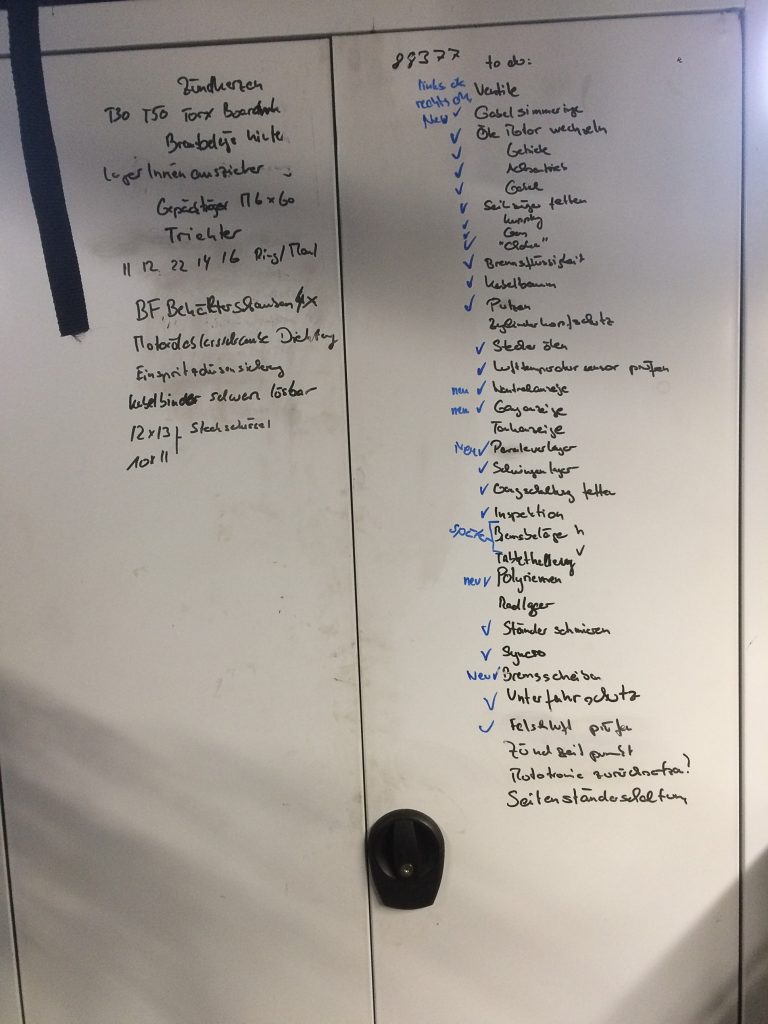 Zündkerzen
T30 T50 Torx
Bremsbeläge hinten
Lager Innenauszieher
Gepäckträger M6 x 60
Trichter
11 12 22 14 16 Ring/Maul
BF. Behälterschrauben 4x
Motorölablassschraube Dichtung
Einspritzdüsen
Kabelbinder schwarz lösbar
12x13 Steckschlüssel
10x11
to do:
links ok Ventile
rechts ok
Neu ✓ Gabelsimmeringe
✓ Öle Motor wechseln
✓ Getriebe
✓ Achsantrieb
✓ Gabel
✓ Seilzüge fetten
✓ Kupplung
✓ Gas
✓ "Choke"
✓ Bremsflüssigkeit
✓ Kabelbaum
✓ Putzen
Zylinderkopfschutz
✓ Stecker ölen
✓ Lufttemperatursensor prüfen
neu ✓ Neutralanzeige
neu ✓ Ganganzeige
Tankanzeige
Neu ✓ Paraleverlager
✓ Schwingenlager
✓ Gangschaltung fetten
✓ Inspektion
später Bremsbeläge h
✓
neu ✓ Polyriemen
Radlager
✓ Ständer schmieren
✓ Syncro
Neu ✓ Bremsscheiben
✓ Unterfahrschutz
✓ Falschluft prüfen
Zündzeitpunkt
Mototronic zurücksetzen?
Seitenständerschaltung